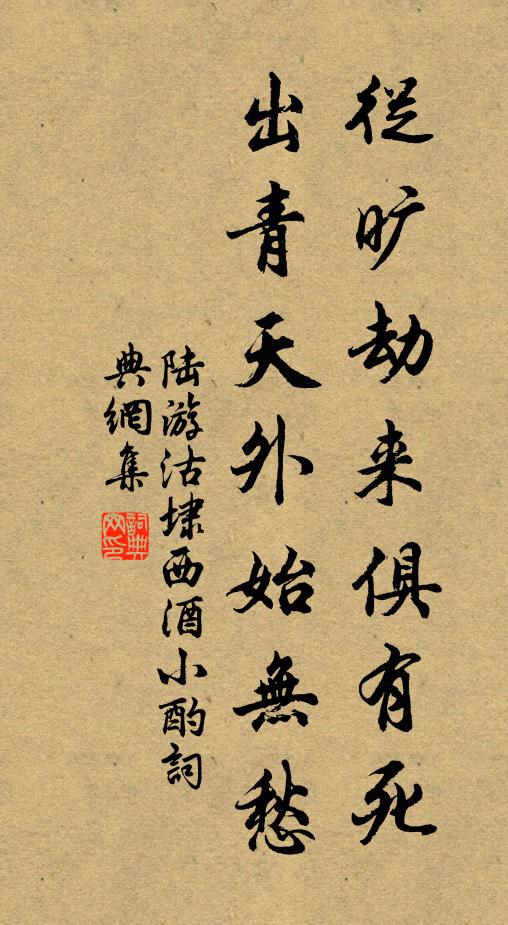 從旷劫来俱有死
出青天外始無愁
陆游沽埭西酒小酌詞
典網集
詞典網印